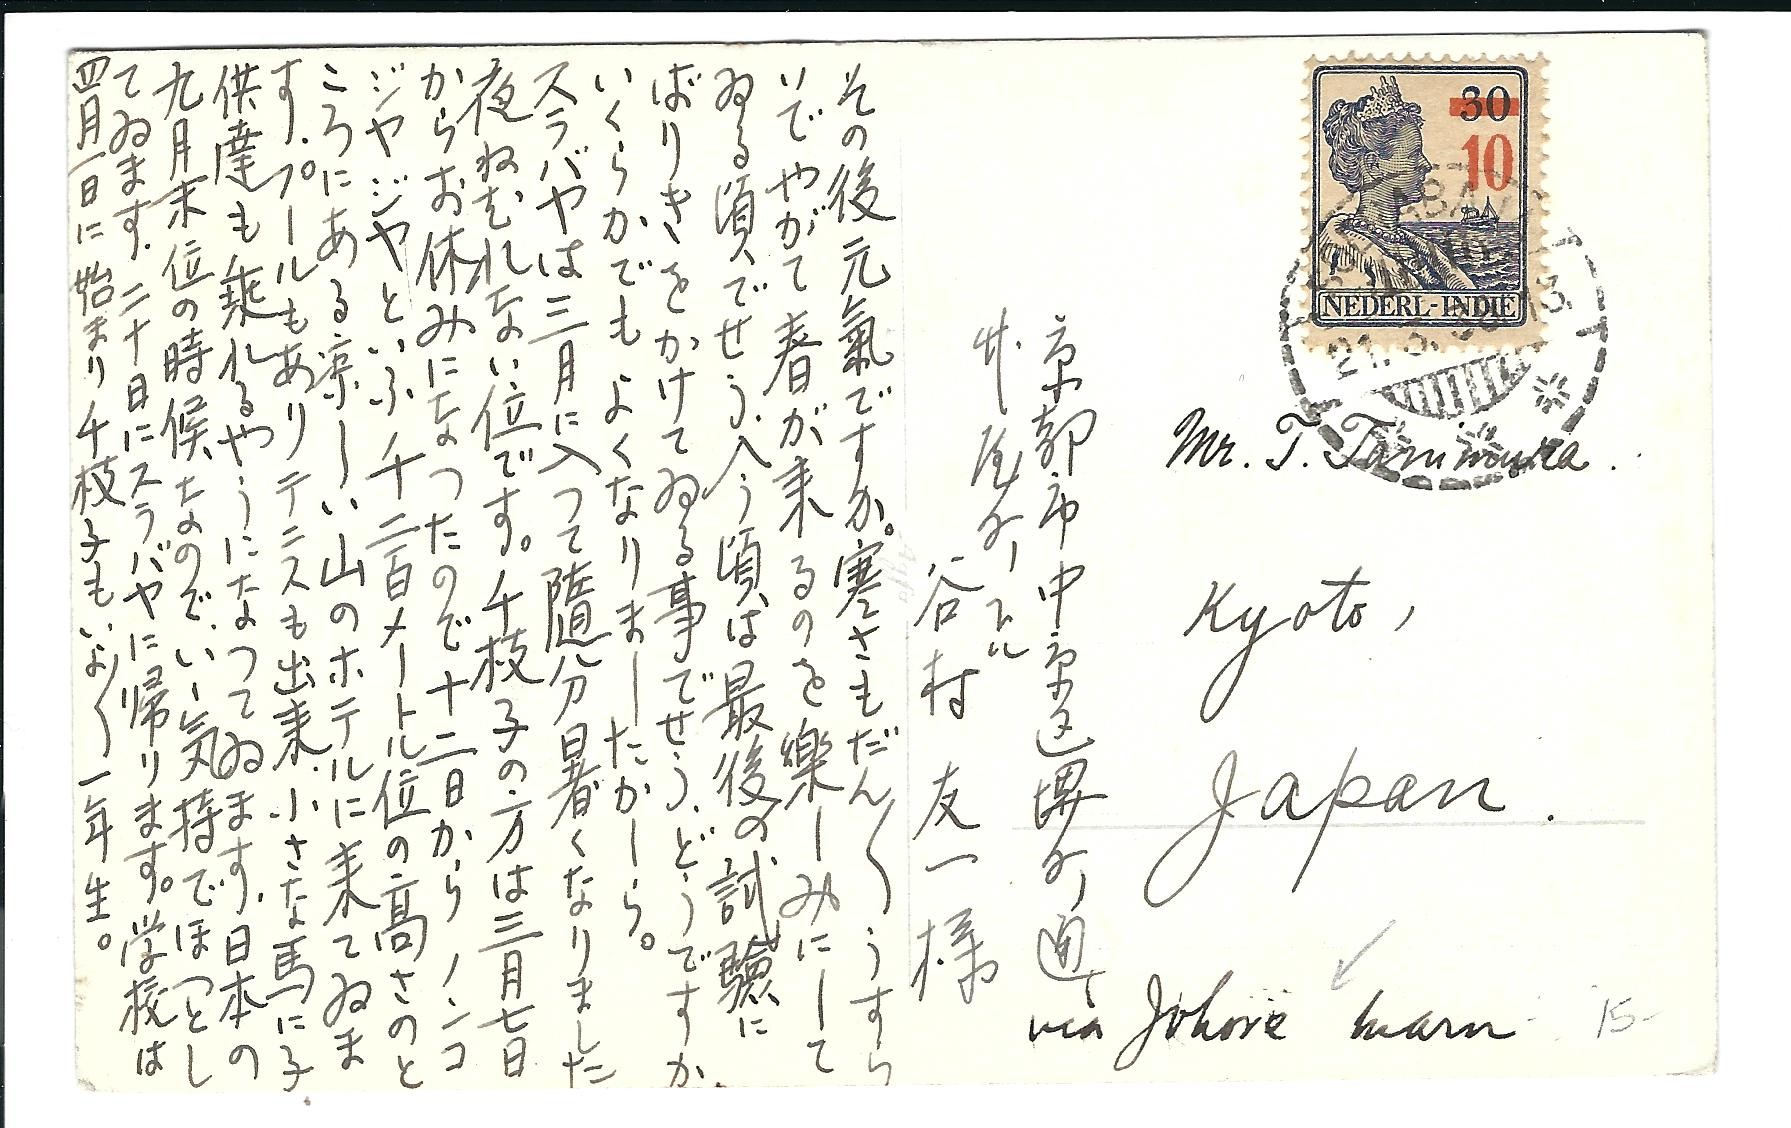 その後元氣ですか。寒さもだん〱うすら
いでやがて春が来るのを樂しみにして
ゐる頃でせう、今頃は最後の試驗に
ばりきをかけてゐる事でせう、どうですか
いくらかでもよくなりましたかしら。
スラバヤは三月に入つて隨分暑くなりました
夜ねむれない位です。千枝子の方は三月七日
からお休みになつたので十二日からノンコ
ジヤジヤといふ千二百メートル位の高さのと
ころにある涼しい山のホテルに来てゐま
す。プールもありテニスも出来、小さな馬に子
供達も乘れるやうになつてゐます、日本の
九月末位の時候なのでいゝ気持でほつとし
てゐます、二十日にスラバヤに帰ります。学校は
四月一日に始まり千枝子もいよ〱一年生。
京都市中京区堺町通
竹屋町上ル
谷村友一様
30
10
NEDERL-INDIË
Mr. T. Tanimura.
Kyoto,
Japan.
via Johore
15-